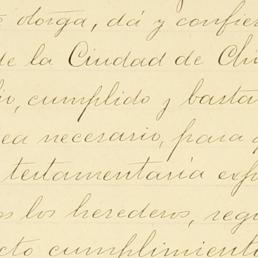 otorga, dá y confier
de la Ciudad de Chi
cumplido y basta
ea necesario, para q
testamentaria exp
os los herederos, regu
cto cumplimient